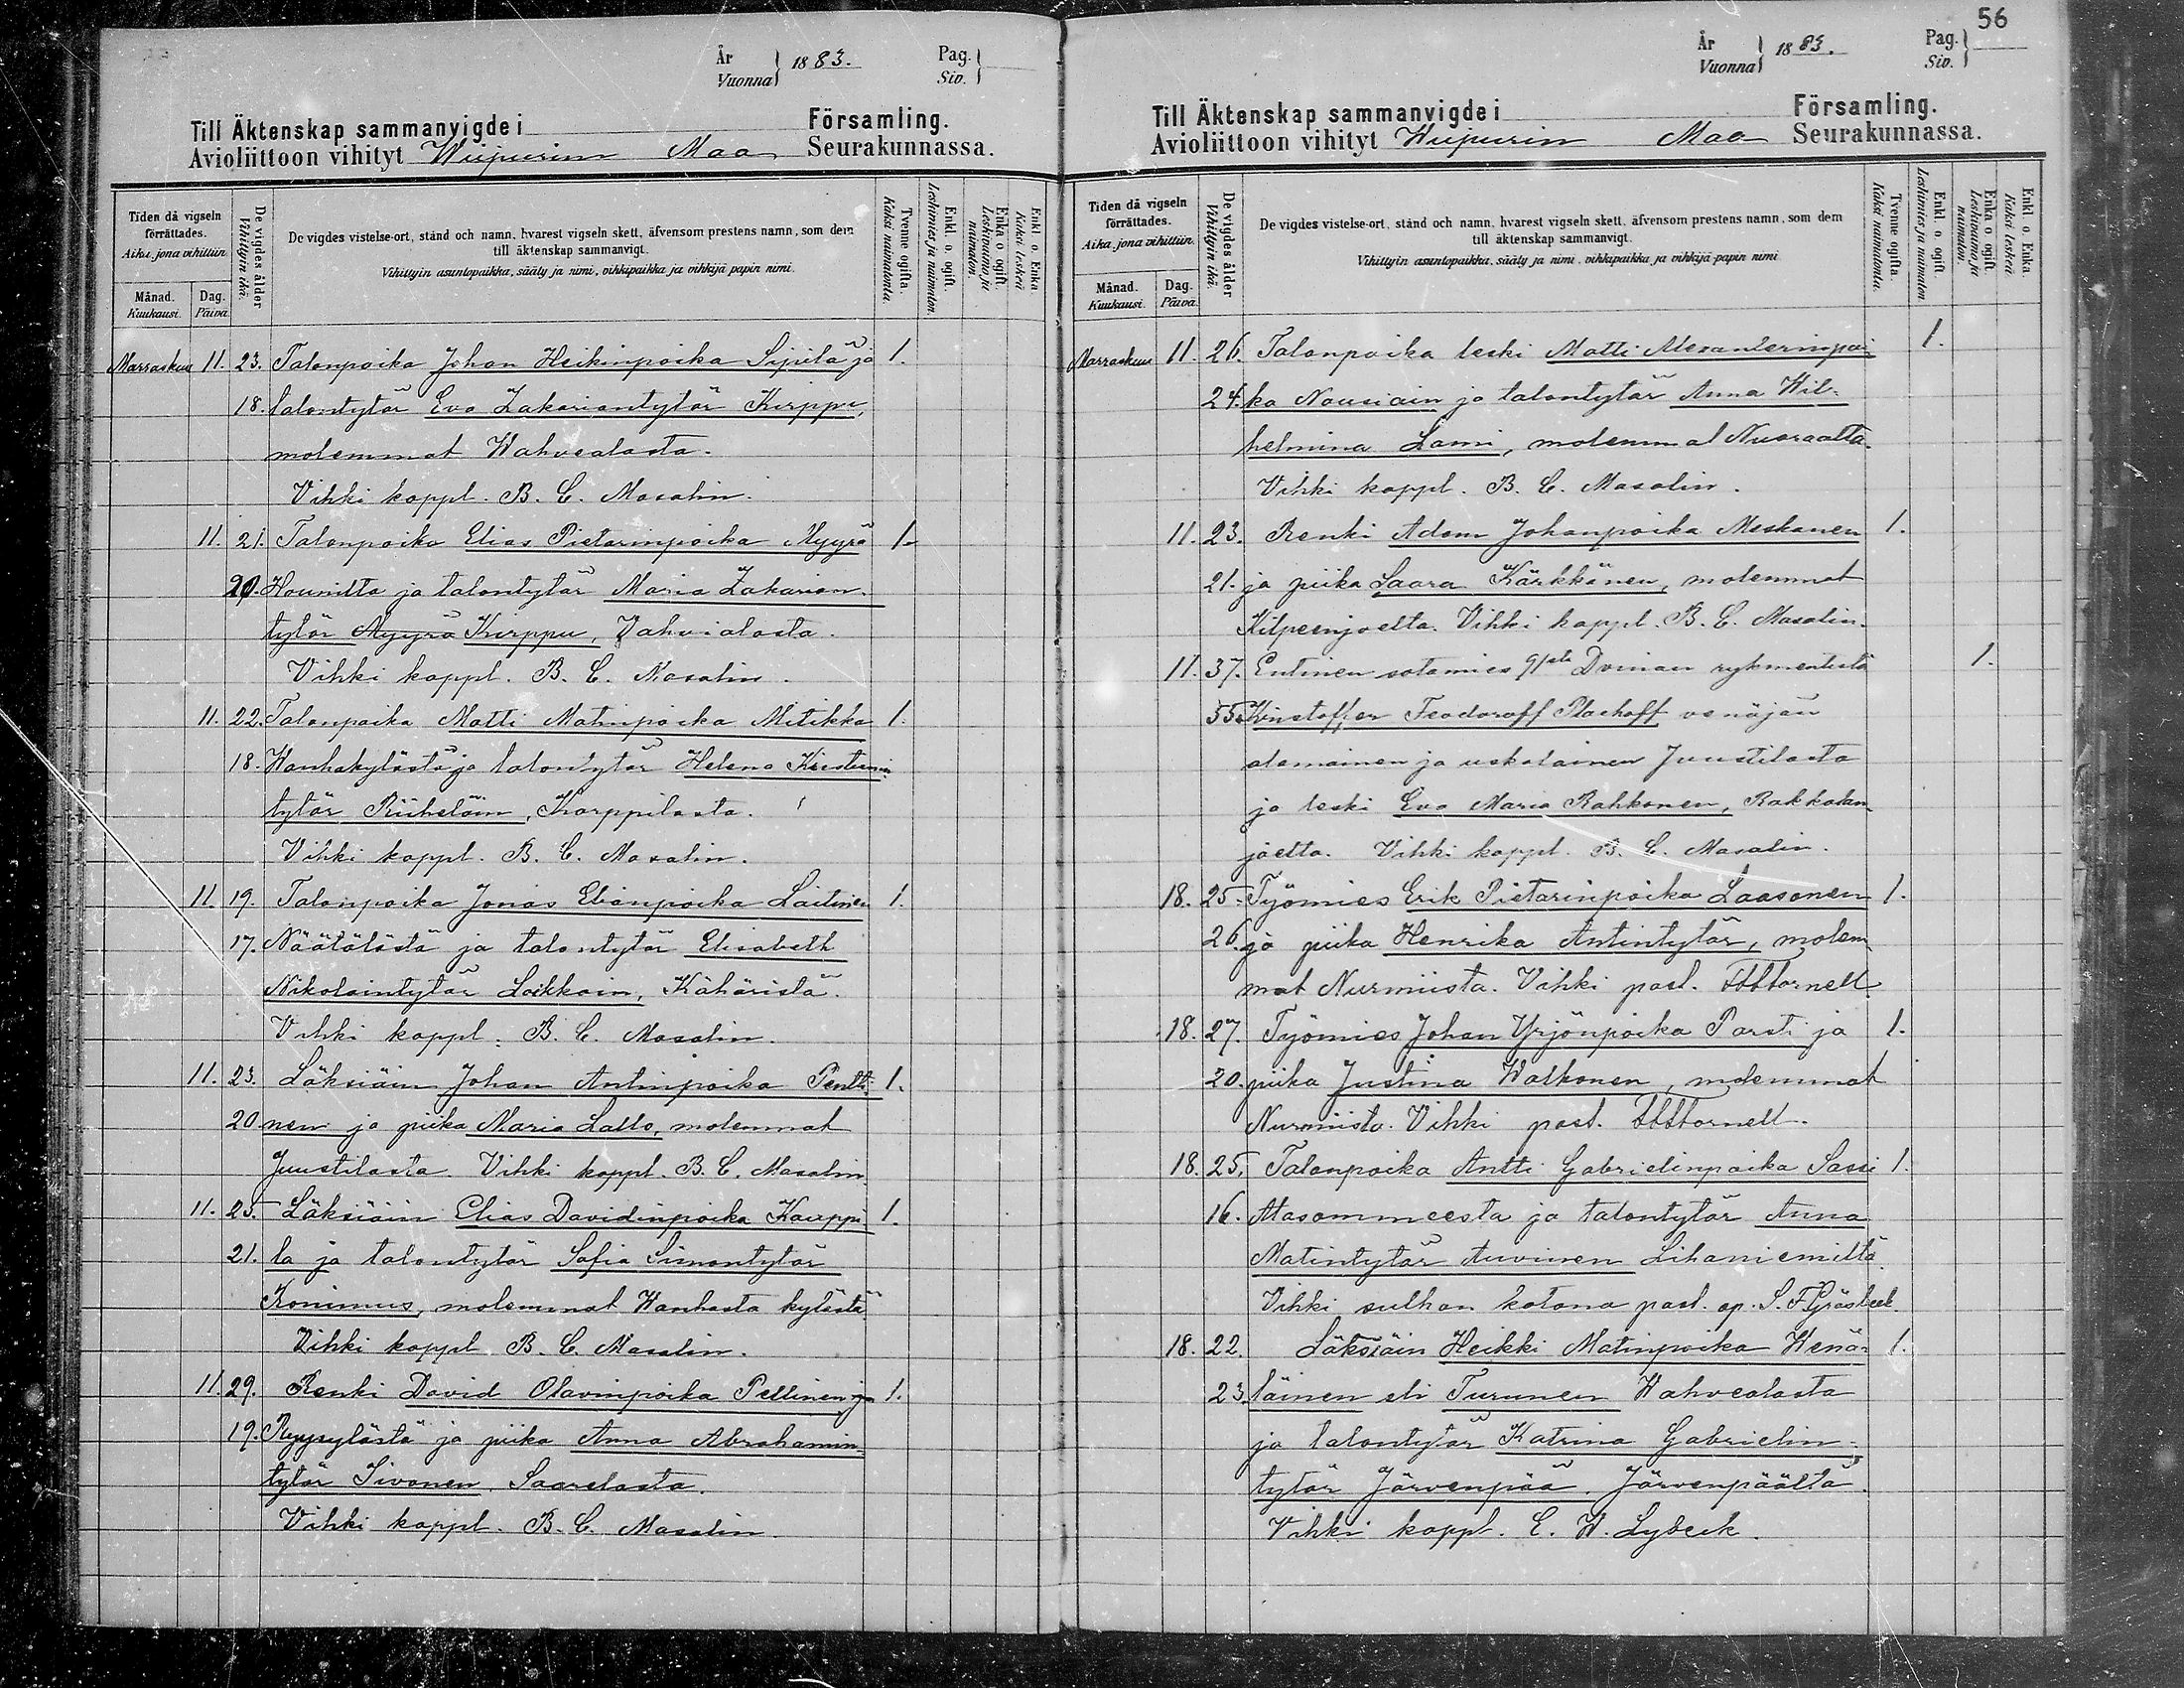 År
Vuonna } 1883.
Pag.
Siv. }
Till Äktenskap sammanvigde i Församling.
Avioliittoon vihityt Wiipurin Maa Seurakunnassa.
Tiden då vigseln förrättades.
Aika, jona vihittiin.
Månad.
Kuukausi.
Dag.
Päivä.
De vigdes ålder
Vihittyin ikä.
De vigdes vistelse-ort, stånd och namn, hvarest vigseln skett, äfvensom prestens namn, som dem
till äktenskap sammanvigt.
Vihittyin asuntopaikka, sääty ja nimi, vihkipaikka ja vihkijä papin nimi.
Tvenne ogifta.
Kaksi naimatonta.
Enkl. o. ogift.
Leskimies ja naimaton.
Enka o. ogift.
Leskivaimo ja naimaton.
Enkl. o. Enka.
Kaksi leskeä
Marraskuu 11. 23. Talonpoika Johan Heikinpoika Sipilä ja 1.
18. talontytär Eva Zakariantytär Kirppu,
molemmat Wahvealasta.
Vihki kappl. B. C. Masalin.
11. 21. Talonpoika Elias Pietarinpoika Myyrä 1.
20. Hounilta ja talontytär Maria Zakarian-
tytär Myyrä Kirppu, Vahvialasta.
Vihki kappl. B. C. Masalin.
11. 22. Talonpoika Matti Matinpoika Mitikka 1.
18. Wanhakylästä ja talontytär Helena Kristianin
tytär Riiheläin, Karppilasta.
Vihki kappl. B. C. Masalin.
11. 19. Talonpoika Jonas Elianpoika Laitinen 1.
17. Näätälästä ja talontytär Elisabeth
Nikolaintytär Loikkain, Kähäristä.
Vihki kappl. B. C. Masalin.
11. 23. Läksiäin Johan Antinpoika Pentti 1.
20 nen ja piika Maria Lallo, molemmat
Juustilasta. Vihki kappl. B. C. Masalin.
11. 25. Läksiäin Elias Davidinpoika Kauppi 1.
21. la ja talontytär Sofia Simontytär
Konimus, molemmat Wanhasta kylästä.
Vihki kappl. B. C. Masalin.
11. 29. Renki David Olavinpoika Pellinen ja 1.
19. Ryysylästä ja piika Anna Abrahamin
tytär Iivonen, Saarelasta.
Vihki kappl. B. C. Masalin
56
År
Vuonna } 1883.
Pag.
Siv. }
Till Äktenskap sammanvigde i Församling.
Avioliittoon vihityt Wiipurin Maa Seurakunnassa.
Tiden då vigseln förrättades.
Aika, jona vihittiin.
Månad.
Kuukausi.
Dag.
Päivä.
De vigdes ålder
Vihittyin ikä.
De vigdes vistelse-ort, stånd och namn, hvarest vigseln skett, äfvensom prestens namn, som dem
till äktenskap sammanvigt.
Vihittyin asuntopaikka, sääty ja nimi, vihkipaikka ja vihkijä papin nimi
Tvenne ogifta.
Kaksi naimatonta.
Enkl. o. ogift.
Leskimies ja naimaton.
Enka o. ogift.
Leskivaimo ja naimaton.
Enkl. o. Enka.
Kaksi leskeä.
Marraskuu 11. 26. Talonpoika leski Matti Alexanterinpoi 1.
24. ka Nousiain ja talontytär Anna Wil-
helmina Lami, molemmat Nuoraalta.
Vihki kappl. B. C. Masalin.
11. 23. Renki Adam Johanpoika Meskanen 1.
21. ja piika Saara Kärkkänen, molemmat
Kilpeenjoelta. Vihki kappl. B. C. Masalin.
11. 37. Entinen sotamies 91stä Dvinan rykmentistä 1.
55. Kristoffer Feodoroff Plachoff venäjän
alamainen ja uskolainen Juustilasta
ja leski Eva Maria Rahkonen, Rakkolan
joelta. Vihki kappl. B. C. Masalin.
18. 25. Työmies Erik Pietarinpoika Laasonen 1.
26. ja piika Henrika Antintytär, molem
mat Nurmiista. Vihki past. Hornell.
18. 27. Työmies Johan Yrjönpoika Parsti ja 1.
20. piika Justina Walkonen, molemmat
Nurmiista. Vihki past. Hornell.
18. 25. Talonpoika Antti Gabrielinpoika Sassi 1.
16. Alasommeesta ja talontytär Anna
Matintytär Auvinen Lihaniemiltä.
Vihki sulhan kotona past. ap. S. F. Gråsbeck.
18. 22. Läksiäin Heikki Matinpoika Wenä- 1.
23. läinen eli Turunen Wahvealasta
ja talontytär Katrina Gabrielin-
tytär Järvenpää, Järvenpäältä.
Vihki kappl. E. W. Lybeck.